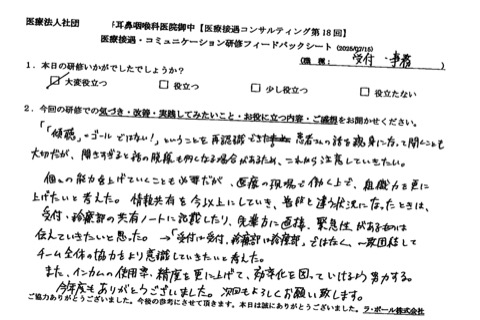 医療法人社団 耳鼻咽喉科医院御中【医療接遇コンサルティング第18回】
医療接遇・コミュニケーション研修フィードバックシート (2025/02/15)
(職種: 受付・事務 )
1．本日の研修いかがでしたでしょうか？
☑大変役立つ □役立つ □少し役立つ □役立たない
2．今回の研修での気づき・改善・実践してみたいこと・お役に立つ内容・ご感想をお聞かせください。
「『傾聴』=ゴールではない！」ということを再認識 患者さんの話を親身になって聞くことも
大切だが、聞きすぎると話の脱線も何になる場合があるため、これから注意していきたい。
個人の能力を上げていくことも必要だが、医療の現場で働く上で、組織力を更に
上げたいと考えた。情報共有を今以上にしていき、普段と違う状況になったときは、
受付・診療部の共有ノートに記載したり、先輩方に直接、緊急性がある物には
伝えていきたいと思った。→「受付は受付、診療部は診療部」ではなく、一致団結して
チーム全体の協力をより意識していきたいと考えた。
また、インカムの使用率、精度を更に上げて、効率化を図っていけるよう努力する。
今年度もありがとうございました。次回もよろしくお願い致します。
ご協力ありがとうございました。今後の参考にさせて頂きます。本日は誠にありがとうございました。ラ・ポール株式会社